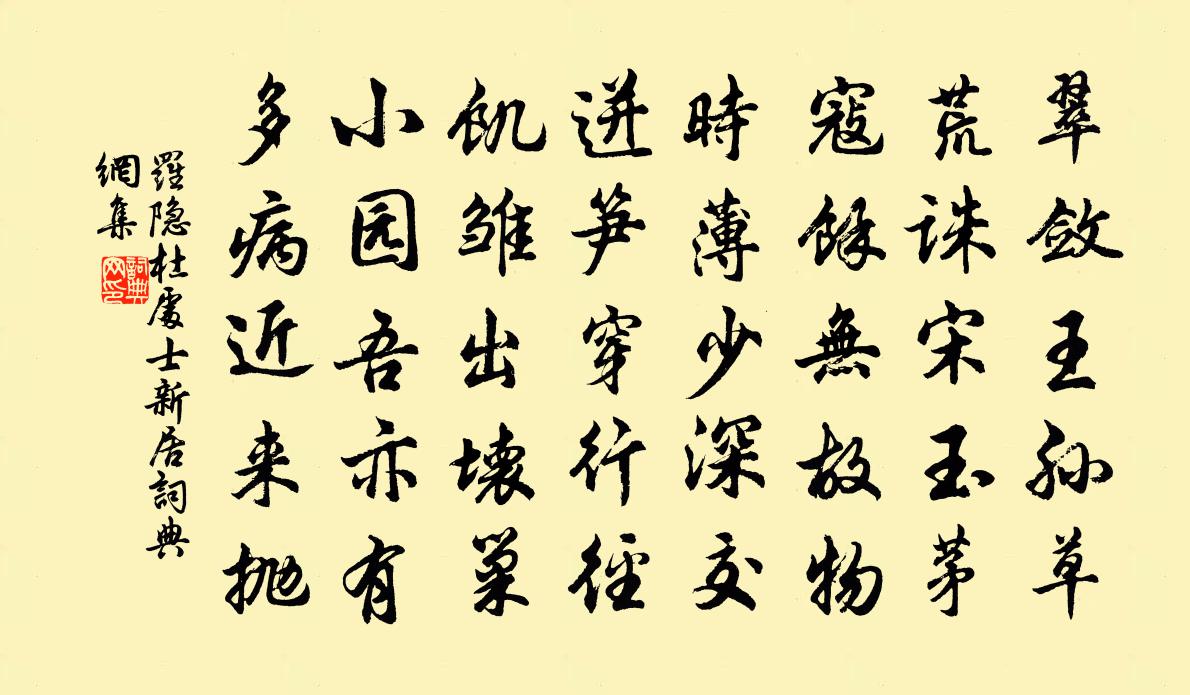 翠斂王孫草
荒誅宋玉茅
寇餘無故物
時薄少深交
迸笋穿行徑
飢雛出壞巢
小园吾亦有
多病近来抛
羅隐杜處士新居詞典
網集
詞典
网印